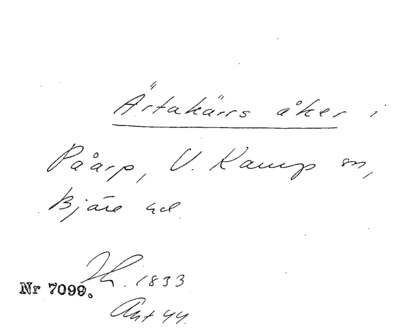 Ärtakärrs åker i
Påarp, V. Karup sn,
Bjäre hd
Lh. 1833
Nr 7099.
Ant 44